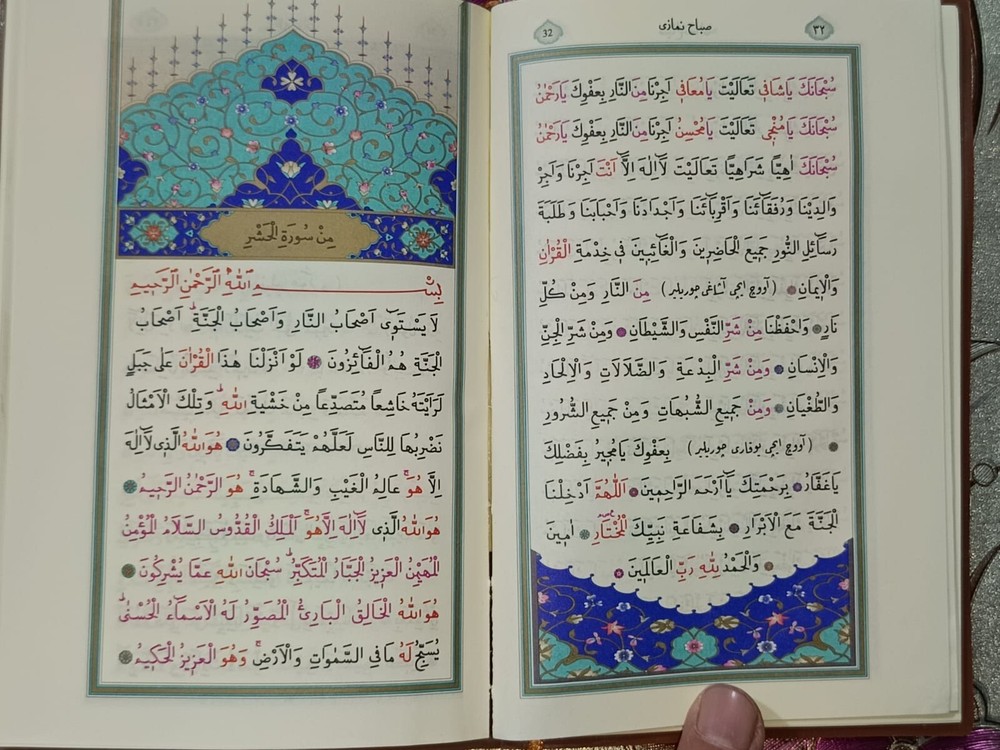 ٣٢
صباح نمازى
32
سُبْحَانَكَ يَاشَافِى تَعَالَيْتَ يَامُعَافِى اَجِرْنَامِنَ النَّارِ بِعَفْوِكَ يَارَحْمٰنُ
سُبْحَانَكَ يَامُنْجِى تَعَالَيْتَ يَامُحْسِنُ اَجِرْنَامِنَ النَّارِ بِعَفْوِكَ يَارَحْمٰنُ
سُبْحَانَكَ اٰهِيًّا شَرَاهِيًّا تَعَالَيْتَ لَٓا اِلٰهَ اِلَّٓا اَنْتَ اَجِرْنَا وَاَجِرْ
وَالِدِيْنَا وَرُفَقَٓائَنَا وَاَقْرِبَٓائَنَا وَاَجْدَادَنَا وَاَحْبَابَنَا وَطَلَبَةَ
رَسَٓائِلِ النُّورِ جَمِيعَ الْحَاضِرِينَ وَالْغَٓائِبِينَ فِى خِدْمَةِ الْقُرْاٰنِ
وَالْاِيمَانِ ۞ (آووچ ايچى آشاغى چوريلير) مِنَ النَّارِ وَمِنْ كُلِّ
نَارٍ ۞ وَاحْفَظْنَا مِنْ شَرِّ النَّفْسِ وَالشَّيْطَانِ ۞ وَمِنْ شَرِّ الْجِنِّ
وَالْاِنْسَانِ ۞ وَمِنْ شَرِّ الْبِدْعَةِ وَالضَّلَالَاتِ وَالْاِلْحَادِ
وَالطُّغْيَانِ ۞ وَمِنْ جَمِيعِ الشُّبُهَاتِ وَمِنْ جَمِيعِ الشُّرُورِ
۞ (آووچ ايچى يوقارى چوريلير) بِعَفْوِكَ يَامُجِيرُ بِفَضْلِكَ
يَاغَفَّارُ ۞ بِرَحْمَتِكَ يَٓا اَرْحَمَ الرَّاحِمِينَ ۞ اَللّٰهُمَّ اَدْخِلْنَا
الْجَنَّةَ مَعَ الْاَبْرَارِ ۞ بِشَفَاعَةِ نَبِيِّكَ الْمُخْتَارِ ۞ اٰمِينَ
۞ وَالْحَمْدُ لِلّٰهِ رَبِّ الْعَالَمِينَ ۞
مِنْ سُورَةِ الْحَشْرِ
بِسْمِ اللّٰهِ الرَّحْمٰنِ الرَّحِيمِ
لَا يَسْتَوِٓى اَصْحَابُ النَّارِ وَاَصْحَابُ الْجَنَّةِ ۜ اَصْحَابُ
الْجَنَّةِ هُمُ الْفَٓائِزُونَ ۞ لَوْ اَنْزَلْنَا هٰذَا الْقُرْاٰنَ عَلٰى جَبَلٍ
لَرَاَيْتَهُ خَاشِعاً مُتَصَدِّعاً مِنْ خَشْيَةِ اللّٰهِ ۜ وَتِلْكَ الْاَمْثَالُ
نَضْرِبُهَا لِلنَّاسِ لَعَلَّهُمْ يَتَفَكَّرُونَ ۞ هُوَ اللّٰهُ الَّذِى لَٓا اِلٰهَ
اِلَّا هُوَ ۚ عَالِمُ الْغَيْبِ وَالشَّهَادَةِ ۚ هُوَ الرَّحْمٰنُ الرَّحِيمُ ۞
هُوَ اللّٰهُ الَّذِى لَٓا اِلٰهَ اِلَّا هُوَ ۚ اَلْمَلِكُ الْقُدُّوسُ السَّلَامُ الْمُؤْمِنُ
الْمُهَيْمِنُ الْعَزِيزُ الْجَبَّارُ الْمُتَكَبِّرُ ۜ سُبْحَانَ اللّٰهِ عَمَّا يُشْرِكُونَ ۞
هُوَ اللّٰهُ الْخَالِقُ الْبَارِئُ الْمُصَوِّرُ لَهُ الْاَسْمَٓاءُ الْحُسْنٰى ۜ
يُسَبِّحُ لَهُ مَا فِى السَّمٰوَاتِ وَالْاَرْضِ ۚ وَهُوَ الْعَزِيزُ الْحَكِيمُ ۞